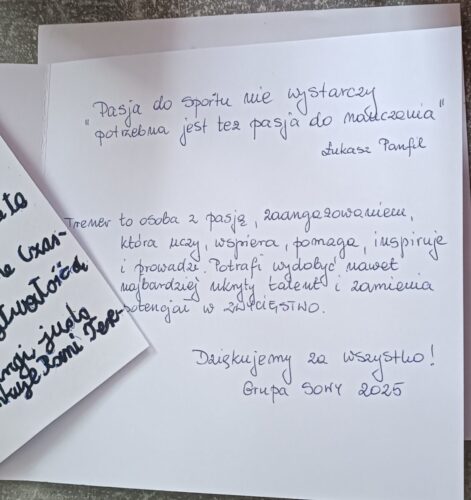 "Pasja do sportu nie wystarczy
potrzebna jest też pasja do nauczania"
Łukasz Panfil
Trener to osoba z pasją, zaangażowaniem,
która uczy, wspiera, pomaga, inspiruje
i prowadzi. Potrafi wydobyć nawet
najbardziej ukryty talent i zamienia
potencjał w ZWYCIĘSTWO.
Dziękujemy za wszystko!
Grupa SOWY 2025
judo
Pami